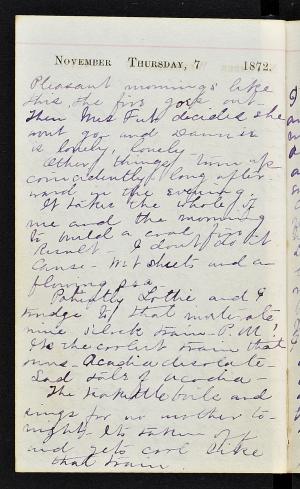 November Thursday, 7 1872.
Pleasant mornings like
this, the fire goes out.
Then Mrs decides she
wont go, and
is lonely, lonely
Other things turn up
coincidently long after-
ward in the evening.
It takes the whole of
me and the morning
to build a coal fire
Result - I don't do it
Cause - Wet sheets and a
flowing sea
Patiently Lottie and I
trudge to that moderate
nine o'clock train - P.M!
Its the coolest train that
runs - Acadia desolate -
Sad tale of Acadia -
The teakettle boils and
sings for no mother to-
night. Its taken off
and gets cool like
that train